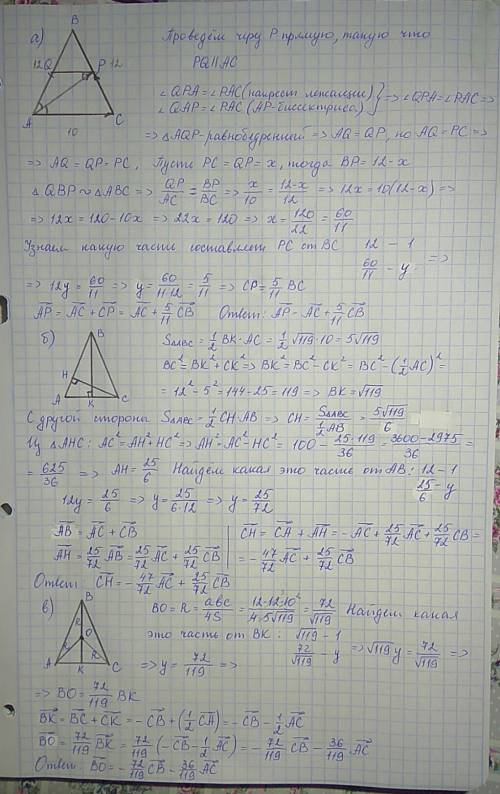 а)
B
12 Q P 12
A C
10
Проведём через P прямую, такую что
PQ||AC
∠QPA=∠PAC (накрест лежащие)
∠QAP=∠PAC (AP-биссектриса) } ⇒ ∠QPA=∠PAC ⇒
⇒ △AQP-равнобедренный ⇒ AQ=QP, но AQ=PC ⇒
⇒ AQ=QP=PC, Пусть PC=QP=x, тогда BP=12-x
△QBP ~ △ABC ⇒ QP/AC = BP/BC ⇒ x/10 = (12-x)/12 ⇒ 12x=10(12-x) ⇒
⇒ 12x=120-10x ⇒ 22x=120 ⇒ x=120/22=60/11
Узнаем какую часть составляет PC от BC 12 - 1
60/11 - y ⇒
⇒ 12y=60/11 ⇒ y=60/(11·12)=5/11 ⇒ CP=5/11 BC
AP=AC+CP=AC+5/11 CB Ответ: AP=AC+5/11 CB
б)
B
H
A K C
Sᴀʙᴄ=1/2 BK·AC=1/2 √119·10=5√119
BC²=BK²+CK² ⇒ BK²=BC²-CK²=BC²-(1/2 AC)²=
=12²-5²=144-25=119 ⇒ BK=√119
С другой стороны Sᴀʙᴄ=1/2 CH·AB ⇒ CH=Sᴀʙᴄ/(1/2 AB)=5√119/6
Из △AHC: AC²=AH²+HC² ⇒ AH²=AC²-HC²=100-25·119/36=(3600-2975)/36=
=625/36 ⇒ AH=25/6 Найдём какая это часть от AB: 12-1
25/6-y
12y=25/6 ⇒ y=25/(6·12) ⇒ y=25/72
AB=AC+CB
AH=25/72 AB=25/72 AC+25/72 CB
CH=CA+AH=-AC+25/72 AC+25/72 CB=
=-47/72 AC+25/72 CB
Ответ: CH=-47/72 AC+25/72 CB
в)
B
R O
R R
A K C
BO=R=abc/4S=12·12·10/(4·5√119)=72/√119 Найдем какая
это часть от BK: √119-1
72/√119-y ⇒ √119 y=72/√119 ⇒
⇒ y=72/119 ⇒
⇒ BO=72/119 BK
BK=BC+CK=-CB+(1/2 CA)=-CB-1/2 AC
BO=72/119 BK=72/119(-CB-1/2 AC)=-72/119 CB-36/119 AC
Ответ: BO=-72/119 CB-36/119 AC